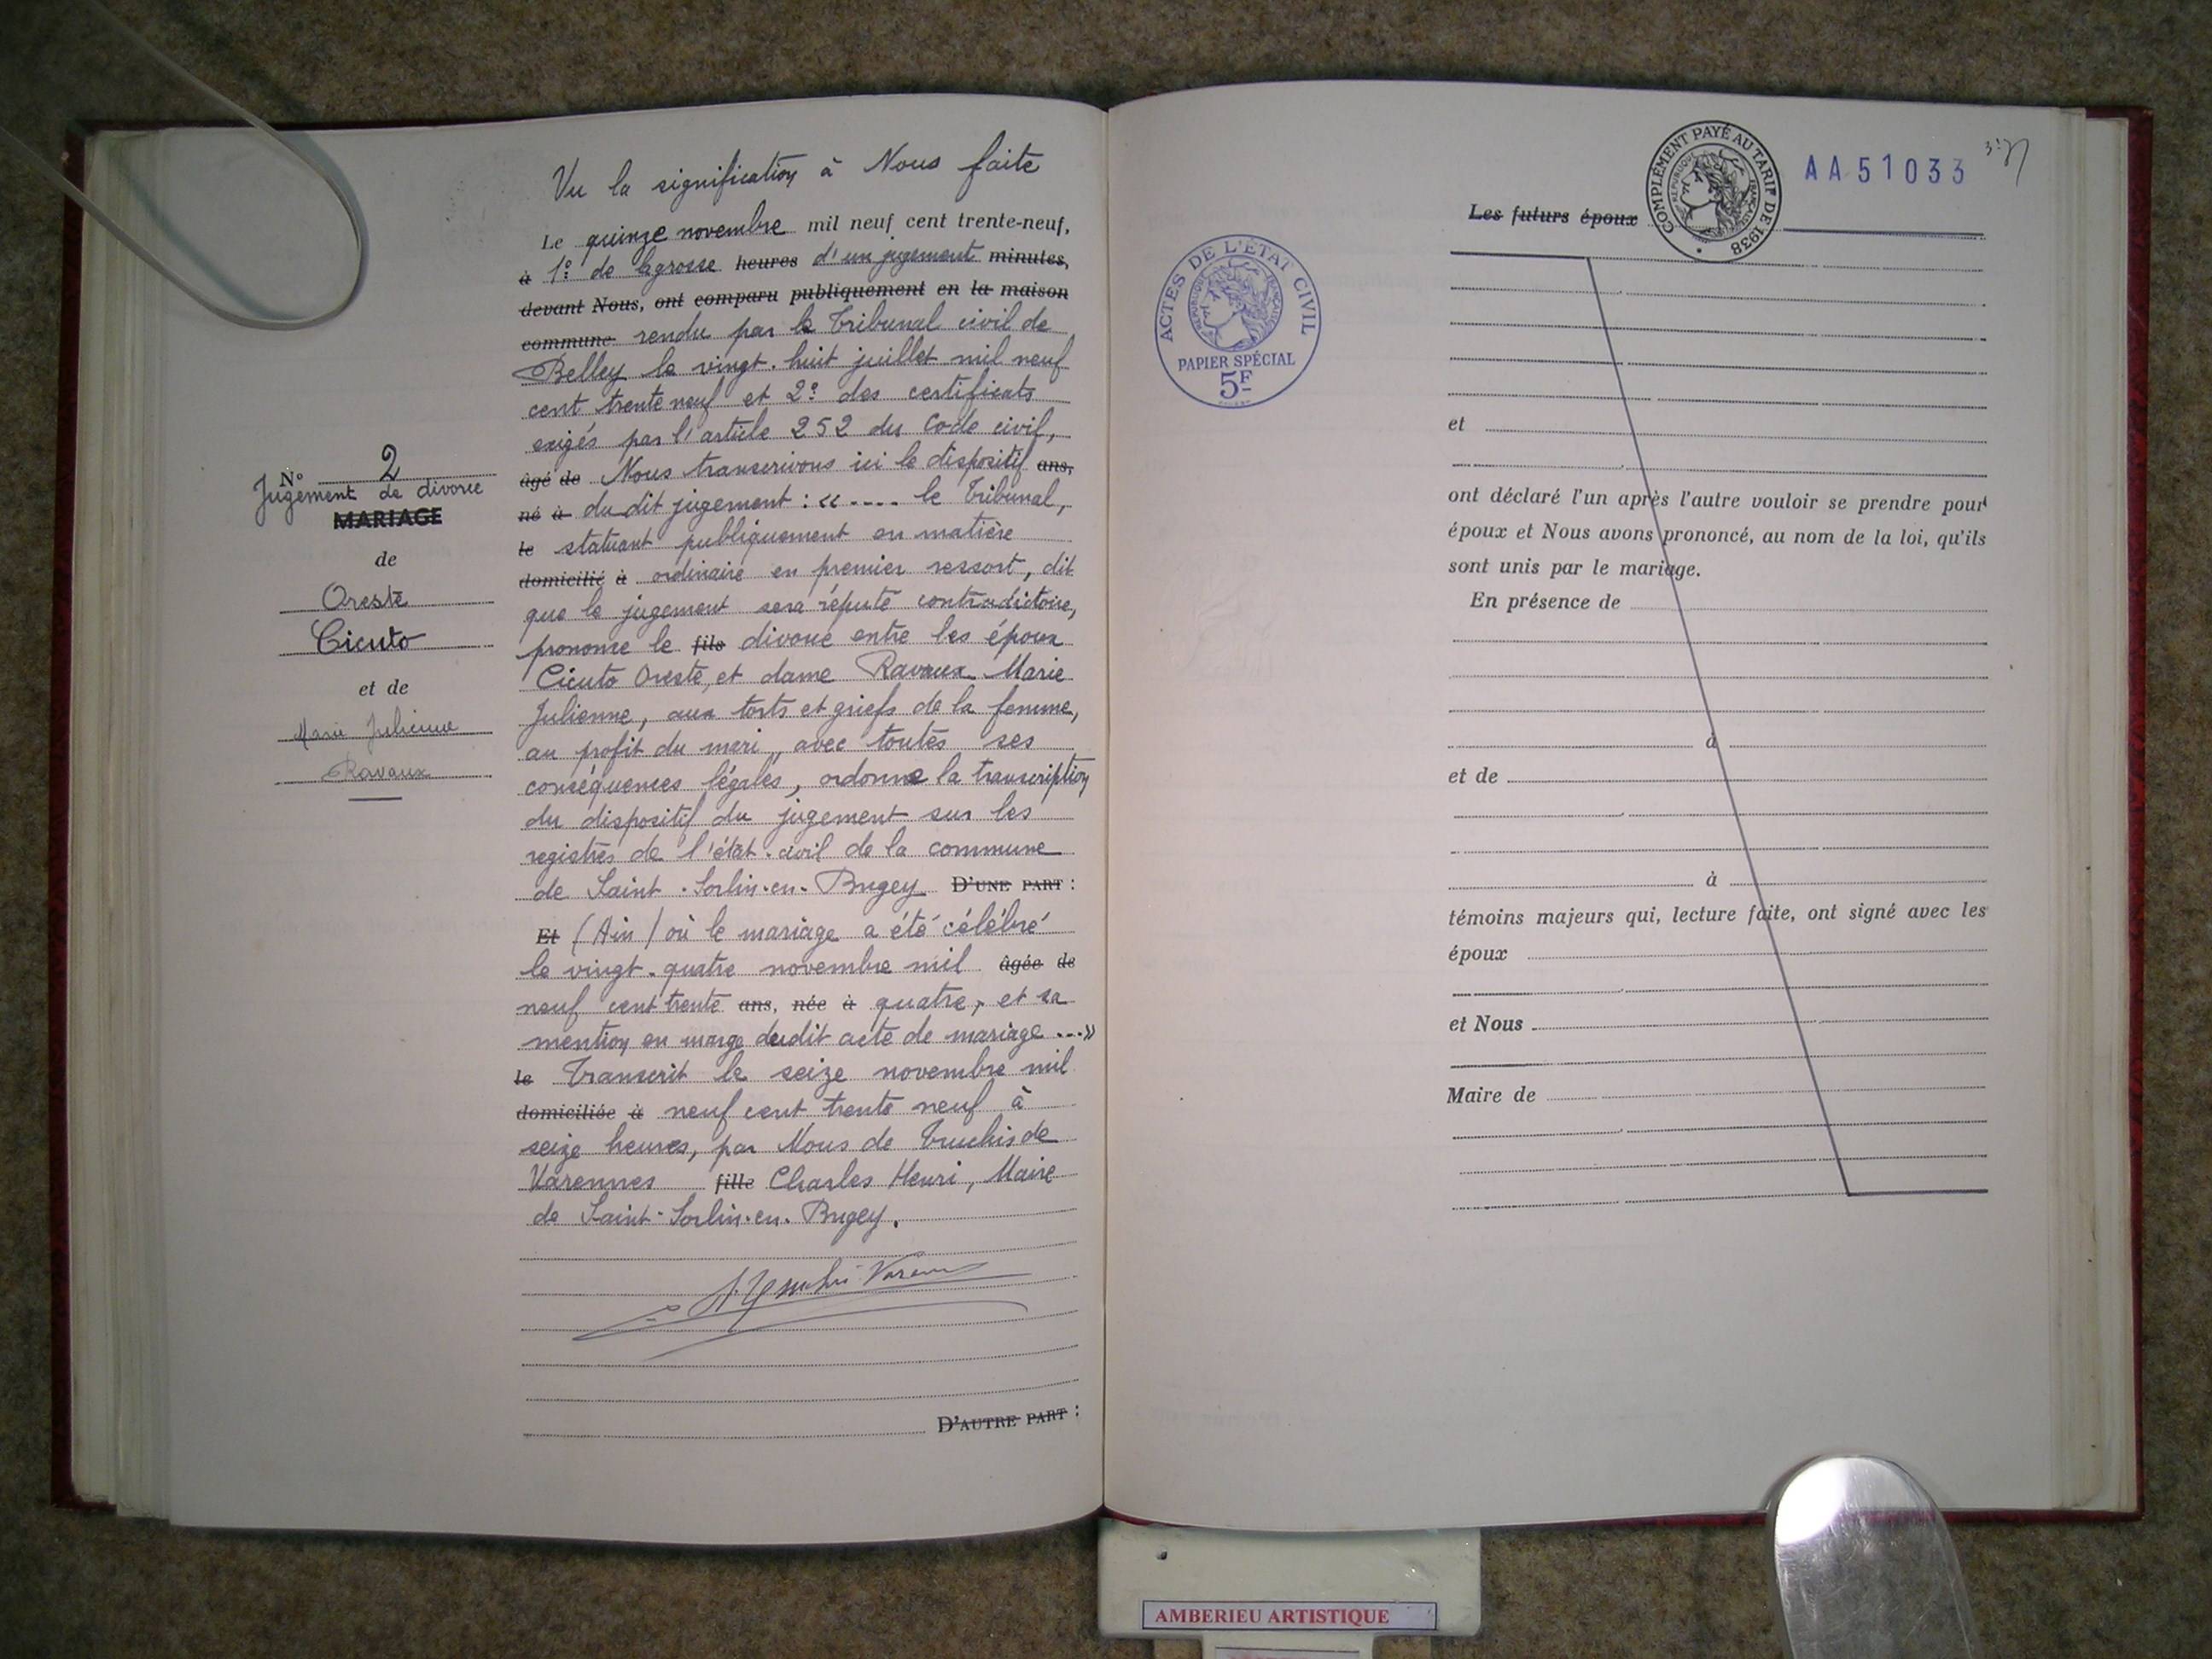 Vu la signification à Nous faite
Le quinze novembre mil neuf cent trente-neuf,
à 1º de la grosse heures d'un jugement minutes,
devant Nous, ont comparu publiquement en la maison
commune rendu par le Tribunal civil de
Belley le vingt-huit juillet mil neuf
cent trente neuf et 2º des certificats
exigés par l'article 252 du Code civil,
âgé de Nous transcrivons ici le dispositif ans,
né à du dit jugement : « .... le Tribunal,
le statuant publiquement en matière
domicilié à ordinaire en premier ressort, dit
que le jugement sera réputé contradictoire,
prononce le fils divorce entre les époux
Cicuto Oreste, et dame Ravaux Marie
Julienne, aux torts et griefs de la femme,
au profit du mari, avec toutes ses
conséquences légales, ordonne la transcription
du dispositif du jugement sur les
registres de l'état-civil de la commune
de Saint-Sorlin-en-Bugey D'UNE PART :
Et (Ain) où le mariage a été célébré
le vingt-quatre novembre mil âgée de
neuf cent trente ans, née à quatre, et sa
mention en marge dudit acte de mariage ...»
le Transcrit le seize novembre mil
domiciliée à neuf cent trente neuf à
seize heures, par Nous de Truchis de
Varennes fille Charles Henri, Maire
de Saint-Sorlin-en-Bugey.
D'AUTRE PART :
Nº 2
Jugement de divorce
MARIAGE
de
Oreste
Cicuto
et de
Marie Julienne
Ravaux
ACTES DE L'ÉTAT CIVIL
RÉPUBLIQUE FRANÇAISE
PAPIER SPÉCIAL
5F
COMPLÉMENT PAYÉ AU TARIF DE 1938
RÉPUBLIQUE FRANÇAISE
AA51033
Les futurs époux
et
ont déclaré l'un après l'autre vouloir se prendre pour
époux et Nous avons prononcé, au nom de la loi, qu'ils
sont unis par le mariage.
En présence de
à
et de
à
témoins majeurs qui, lecture faite, ont signé avec les
époux
et Nous
Maire de
AMBERIEU ARTISTIQUE